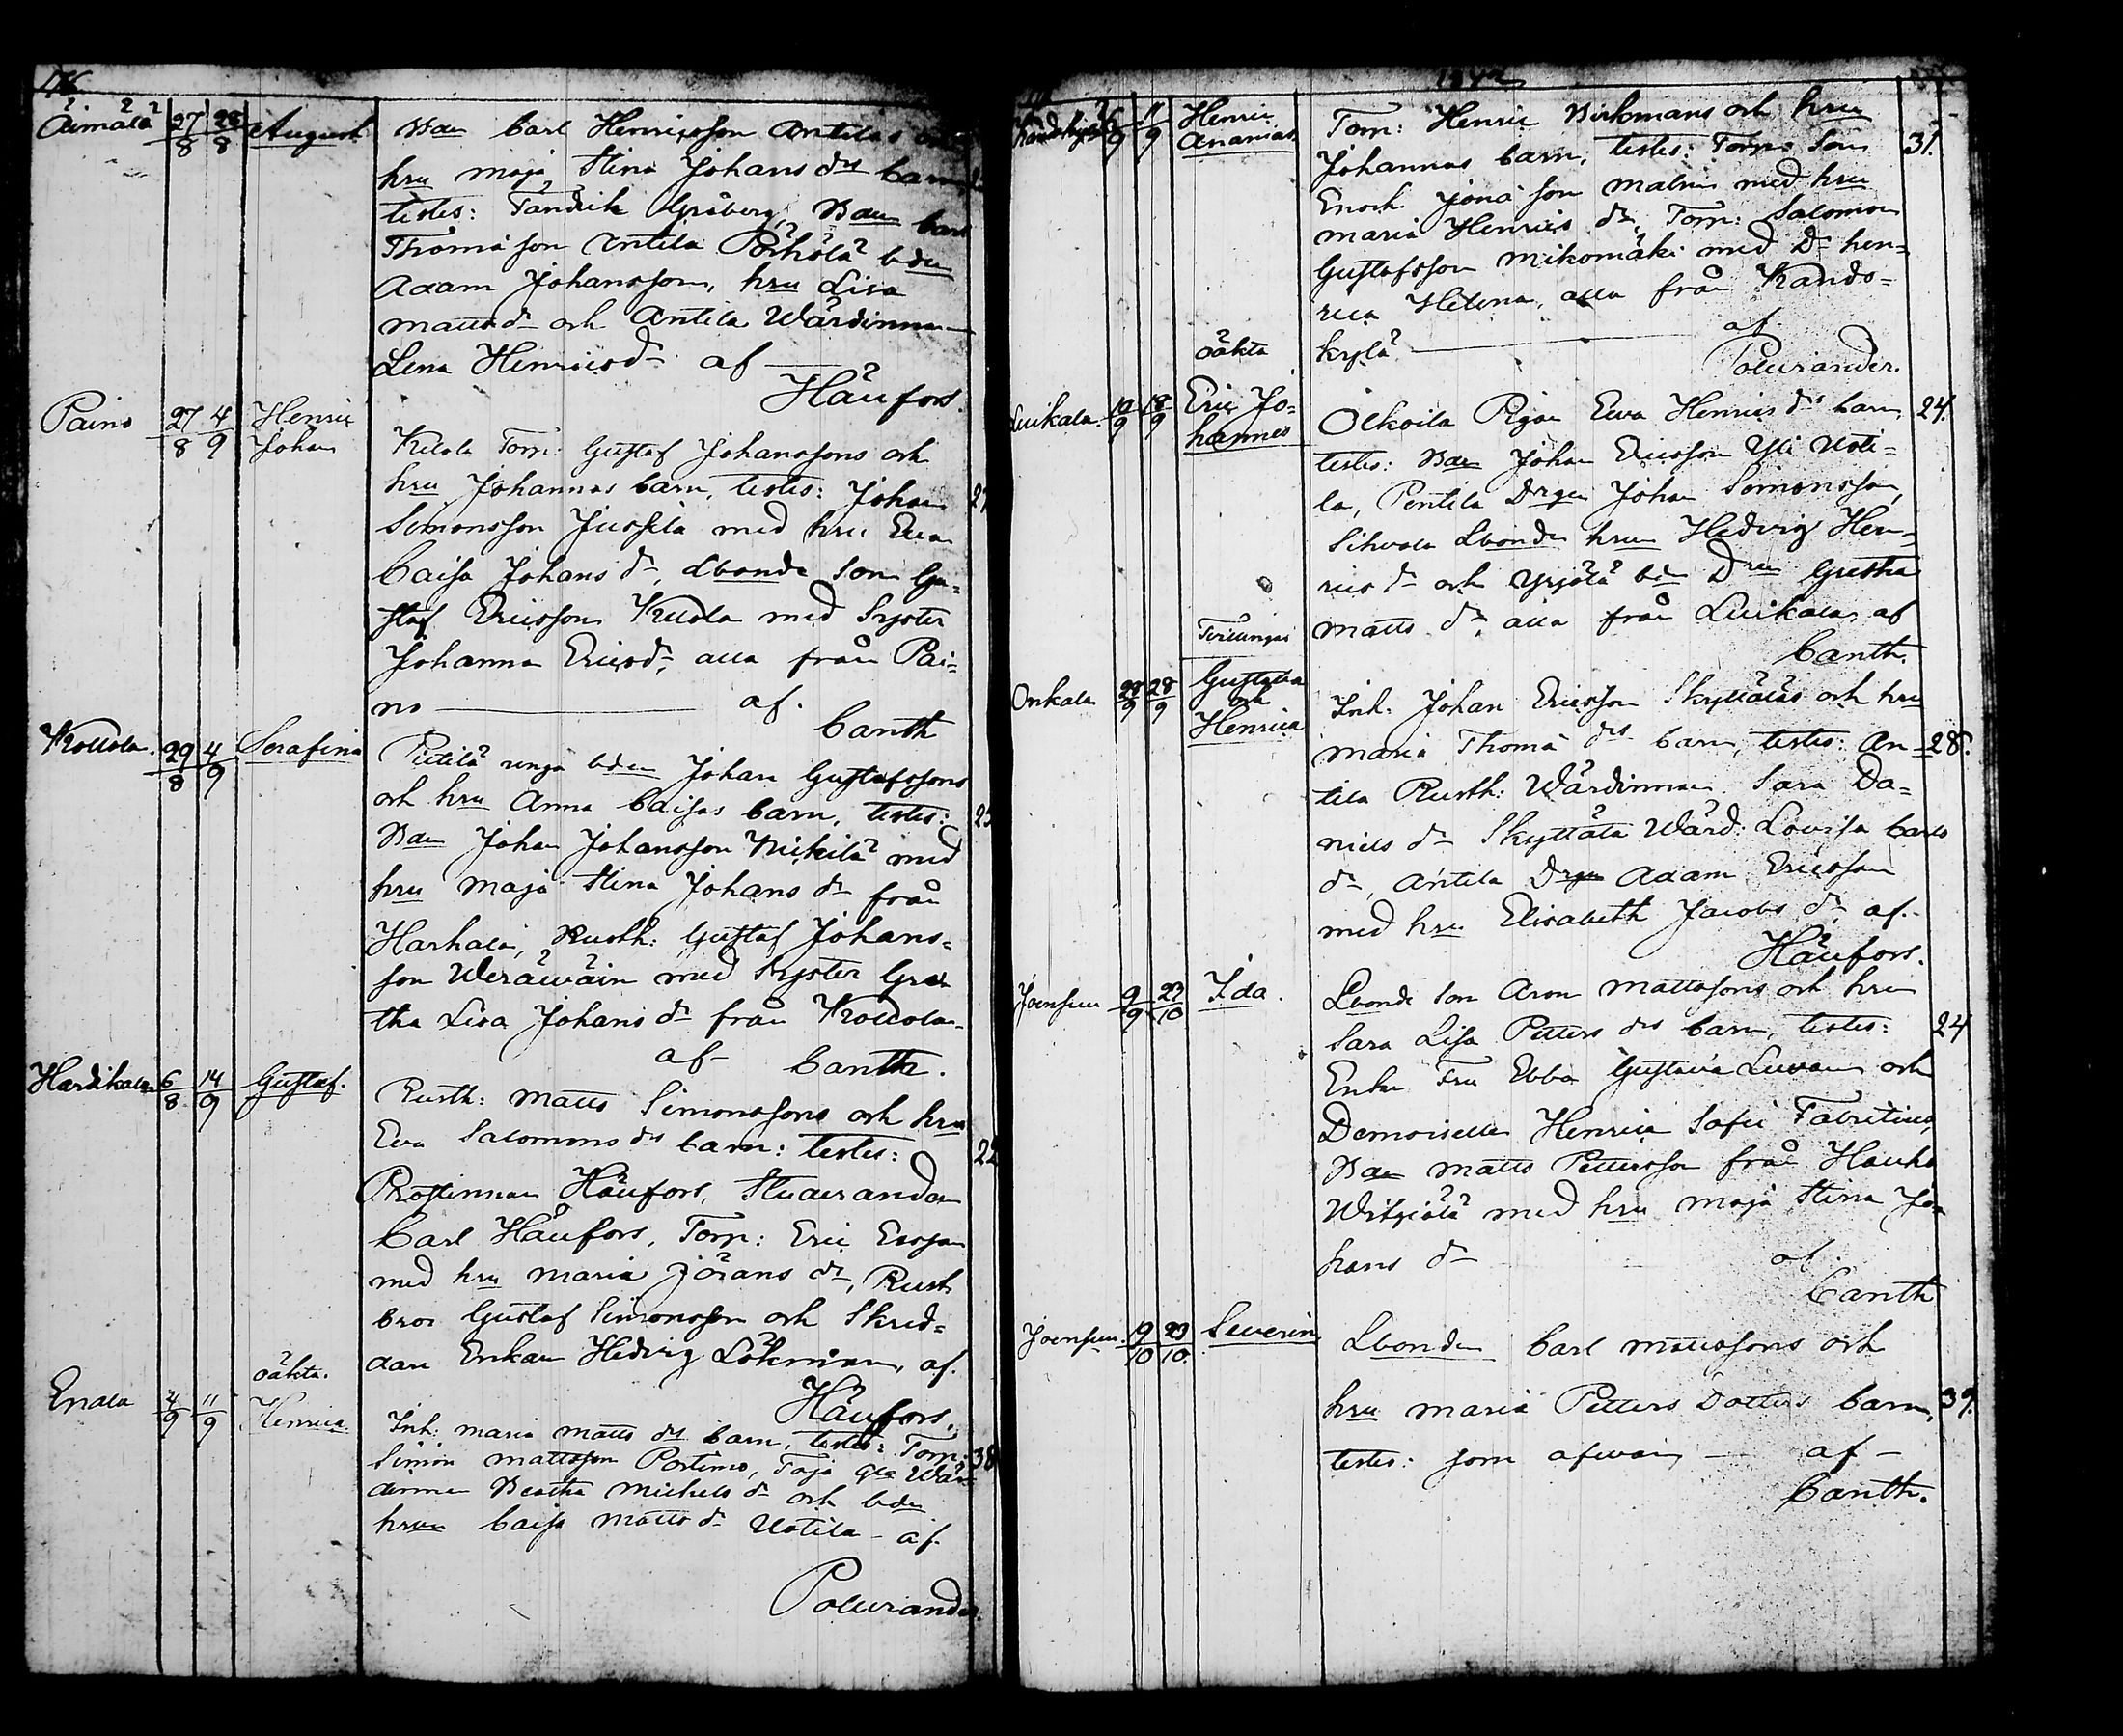 176
Äimälä 27/8 28/8 August Bdn Carl Henricsson Antilas och
hru Maja Stina Johans drs barn
testes: Fändrik Gråberg, Bdn Carl
Thomä son Antila Pörhölä bdn
Adam Johansson, hru Lisa
Matts dr och Antila Wärdinnan
Lena Henricsdr af
Häufors.
Paino 27/8 4/9 Henric Johan
Keilola Torp: Gustaf Johanssons och
hru Johannas barn, testes: Johan
Simonsson Jussila med hru Eva
Caisa Johans dr, Lbonde Son Gu-
staf Ericsson Keilola med Syster
Johanna Ericsdr, alla från Pai-
no af.
Canth
Kollola. 29/8 4/9 Serafina
Pietilä unga bden Johan Gustafssons
och hru Anna Caisas barn, testes:
Bdn Johan Johansson Nickilä med
hru Maja Stina Johans dr från
Harhala, Rusth: Gustaf Johans-
son Weräwäin med Syster Gre-
tha Lisa Johans dr från Kollola
af Canth.
Hardikala 6/8 14/9 Gustaf.
Rusth: Matts Simonssons och hru
Eva Salomons drs barn: testes: 22
Prostinnan Häufors, Studeranden
Carl Häufors, Torp: Eric Ersson
med hru Maria Jörans dr, Rusth
bror Gustaf Simonsson och Skred-
dare Enkan Hedvig Lökman, af.
Häufors.
oäkta.
Enala 4/9 11/9 Henrica
Inh: Maria Matts drs barn, testes: Torp: 38
Simon Mattsson Portimo, Toja gla Wär-
dinna Beatha Michels dr och bdn
hrun Caisa Matts dr Uotila af.
Polvianander.
Henric Ananias
Torp: Henric Birkmans och hru
Johannas barn, testes: Torps Son 31.
Enoch Jona son Malm med hru
Maria Henrics dr, Torp: Salomon
Gustafsson Mikomäki med Dr hen-
rica Helena, alla från Kando-
kylä af
oäkta
Luikala. 10/9 18/9 Eric Jo-
hannes
Olkoila Pigan Eva Henrics drs barn 24.
testes: Bdn Johan Ericsson Yli Uoti-
la, Pentila Drgn Johan Simonsson,
Sihvola Lbonde hrun Hedvig Hen-
rics dr och Yrjölä bdn Dren Gretha
Matts dr, alla från Luikala, af
Canth.
Tvillingar
Onkala 28/9 28/9 Gustava
och
Henrica
Inh: Johan Ericsson Skyttäläs och hru
Maria Thomä drs barn, testes: An- 28.
tila Rusth: Wärdinnan Sara Da-
niels dr Skyttälä Wärd: Lovisa Carls
dr, Antila Drgn Adam Ericsson
med hru Elisabeth Jacobs dr, af.
Häufors.
Joensuu 9/9 23/10 Ida.
Lbonde Son Aron Mattssons och hru
Sara Lisa Petters drs barn, testes: 24
Enke Fru Ebba Gustava Luvain och
Demoiselle Henrica Sofie Fabritius,
Bdn Matts Pettersson från Hauho
Witziälä med hru Maja Stina Jo-
hans dr af
Canth
Joensuu. 19/10 23/10. Severin
Lbonden Carl Mattssons och
hru Maria Petters Dotters barn, 39.
testes: som ofvan af
Canth.